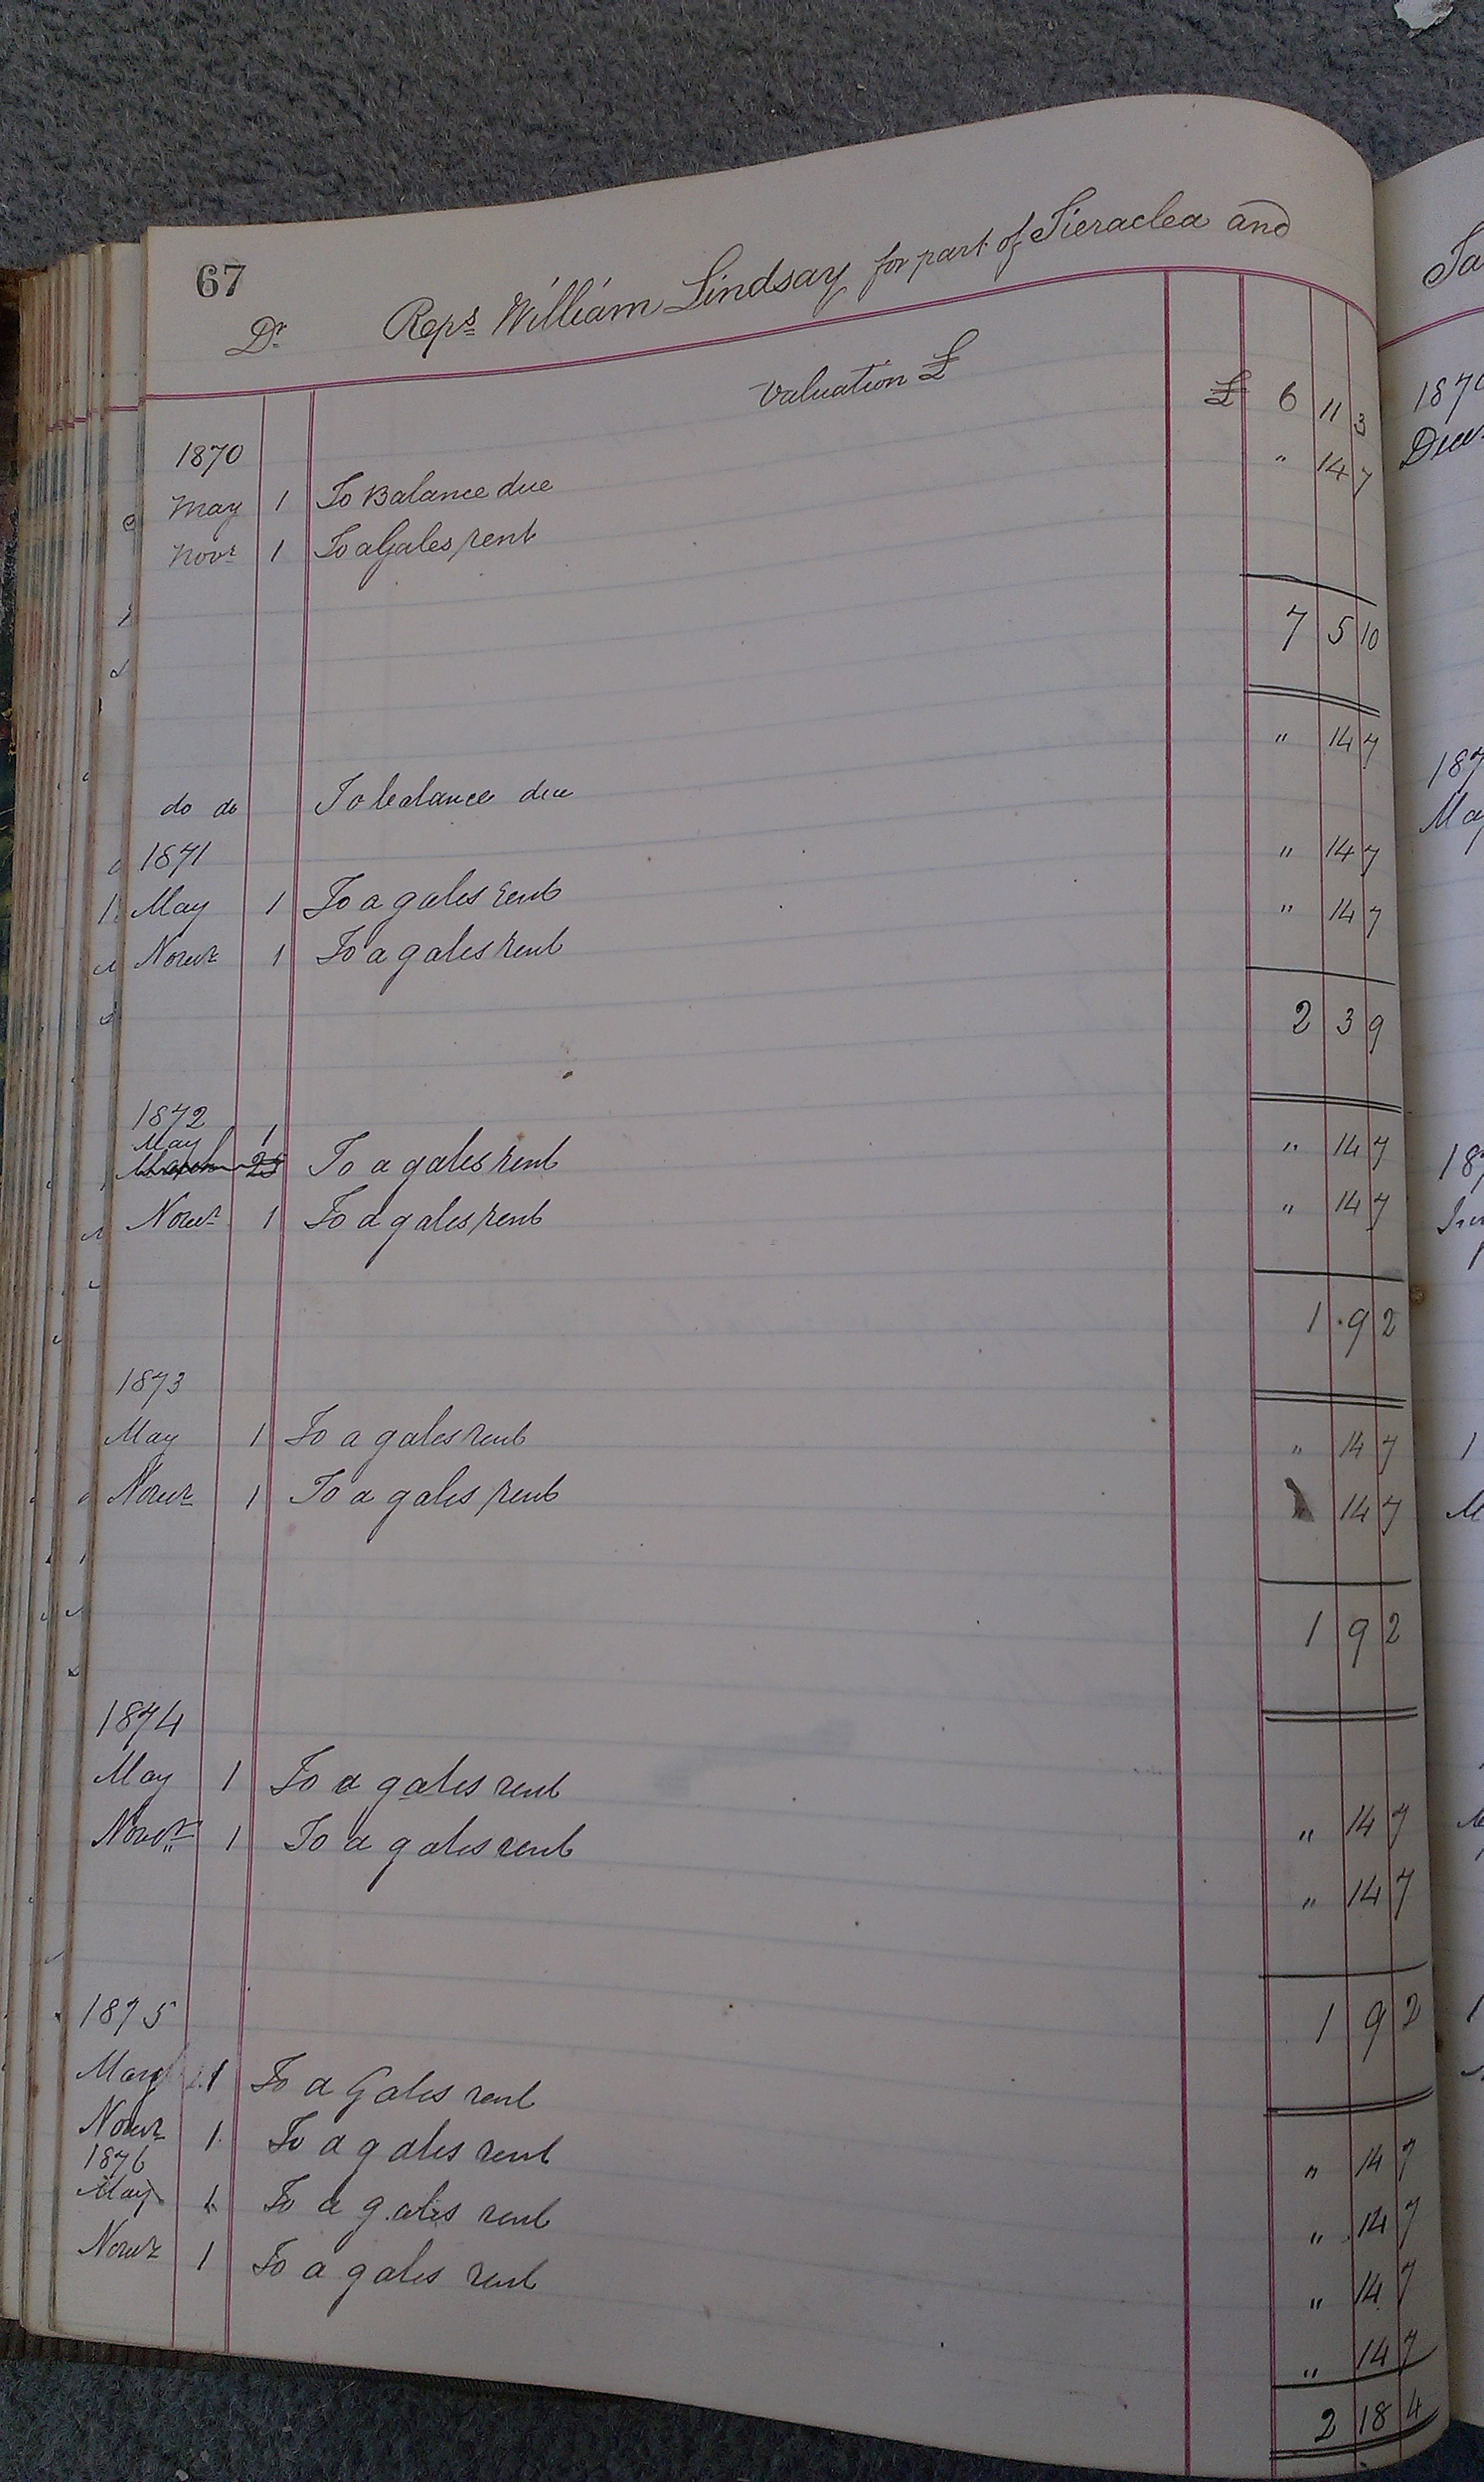 67
Dr Reps William Lindsay for part of Tieraclea and
Valuation £
1870
May 1 To Balance due £ 6 11 3
Novr 1 To a Gales rent " 14 7
7 5 10
do do To balance due " 14 7
1871
May 1 To a gales rent " 14 7
Novr 1 To a gales rent " 14 7
2 3 9
1872
May 1
March 25 To a gales rent " 14 7
Novr 1 To a gales rent " 14 7
1 9 2
1873
May 1 To a gales rent " 14 7
Novr 1 To a gales rent 14 7
1 9 2
1874
May 1 To a gales rent " 14 7
Novr 1 To a gales rent " 14 7
1 9 2
1875
May 1 To a Gales rent " 14 7
Novr 1 To a gales rent " 14 7
1876
May 1 To a gales rent " 14 7
Novr 1 To a gales rent " 14 7
2 18 4